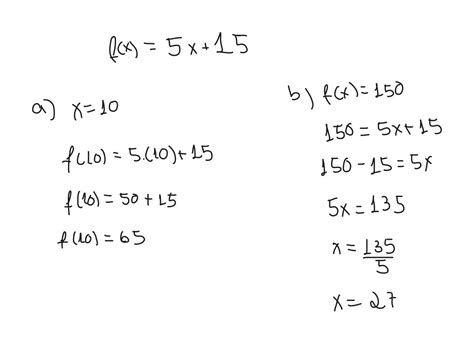 f(x) = 5x+15
a) x=10
f(10) = 5.(10)+15
f(10) = 50+15
f(10) = 65
b) f(x)=150
150 = 5x+15
150-15=5x
5x=135
x = 135/5
x= 27